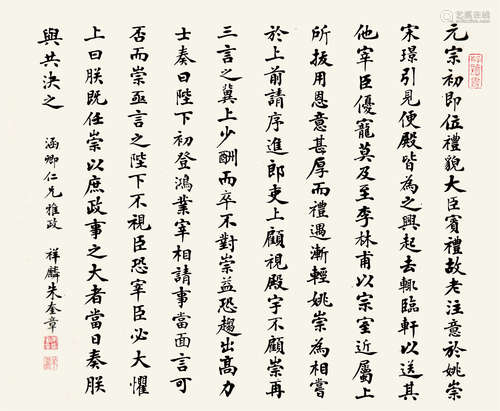 元宗初即位禮貌大臣賓禮故老注意於姚崇
宋璟引見便殿皆為之興起去輒臨軒以送其
他宰臣優寵莫及至李林甫以宗室近屬上
所拔用恩意甚厚而禮遇漸輕姚崇為相嘗
於上前請序進郎吏上顧視殿宇不顧崇再
三言之冀上少酬而卒不對崇益恐趨出高力
士奏曰陛下初登鴻業宰相請事當面言可
否而崇亟言之陛下不視臣恐宰臣必大懼
上曰朕既任崇以庶政事之大者當日奏朕
與共決之
涵卿仁兄雅政 祥麟朱奎章